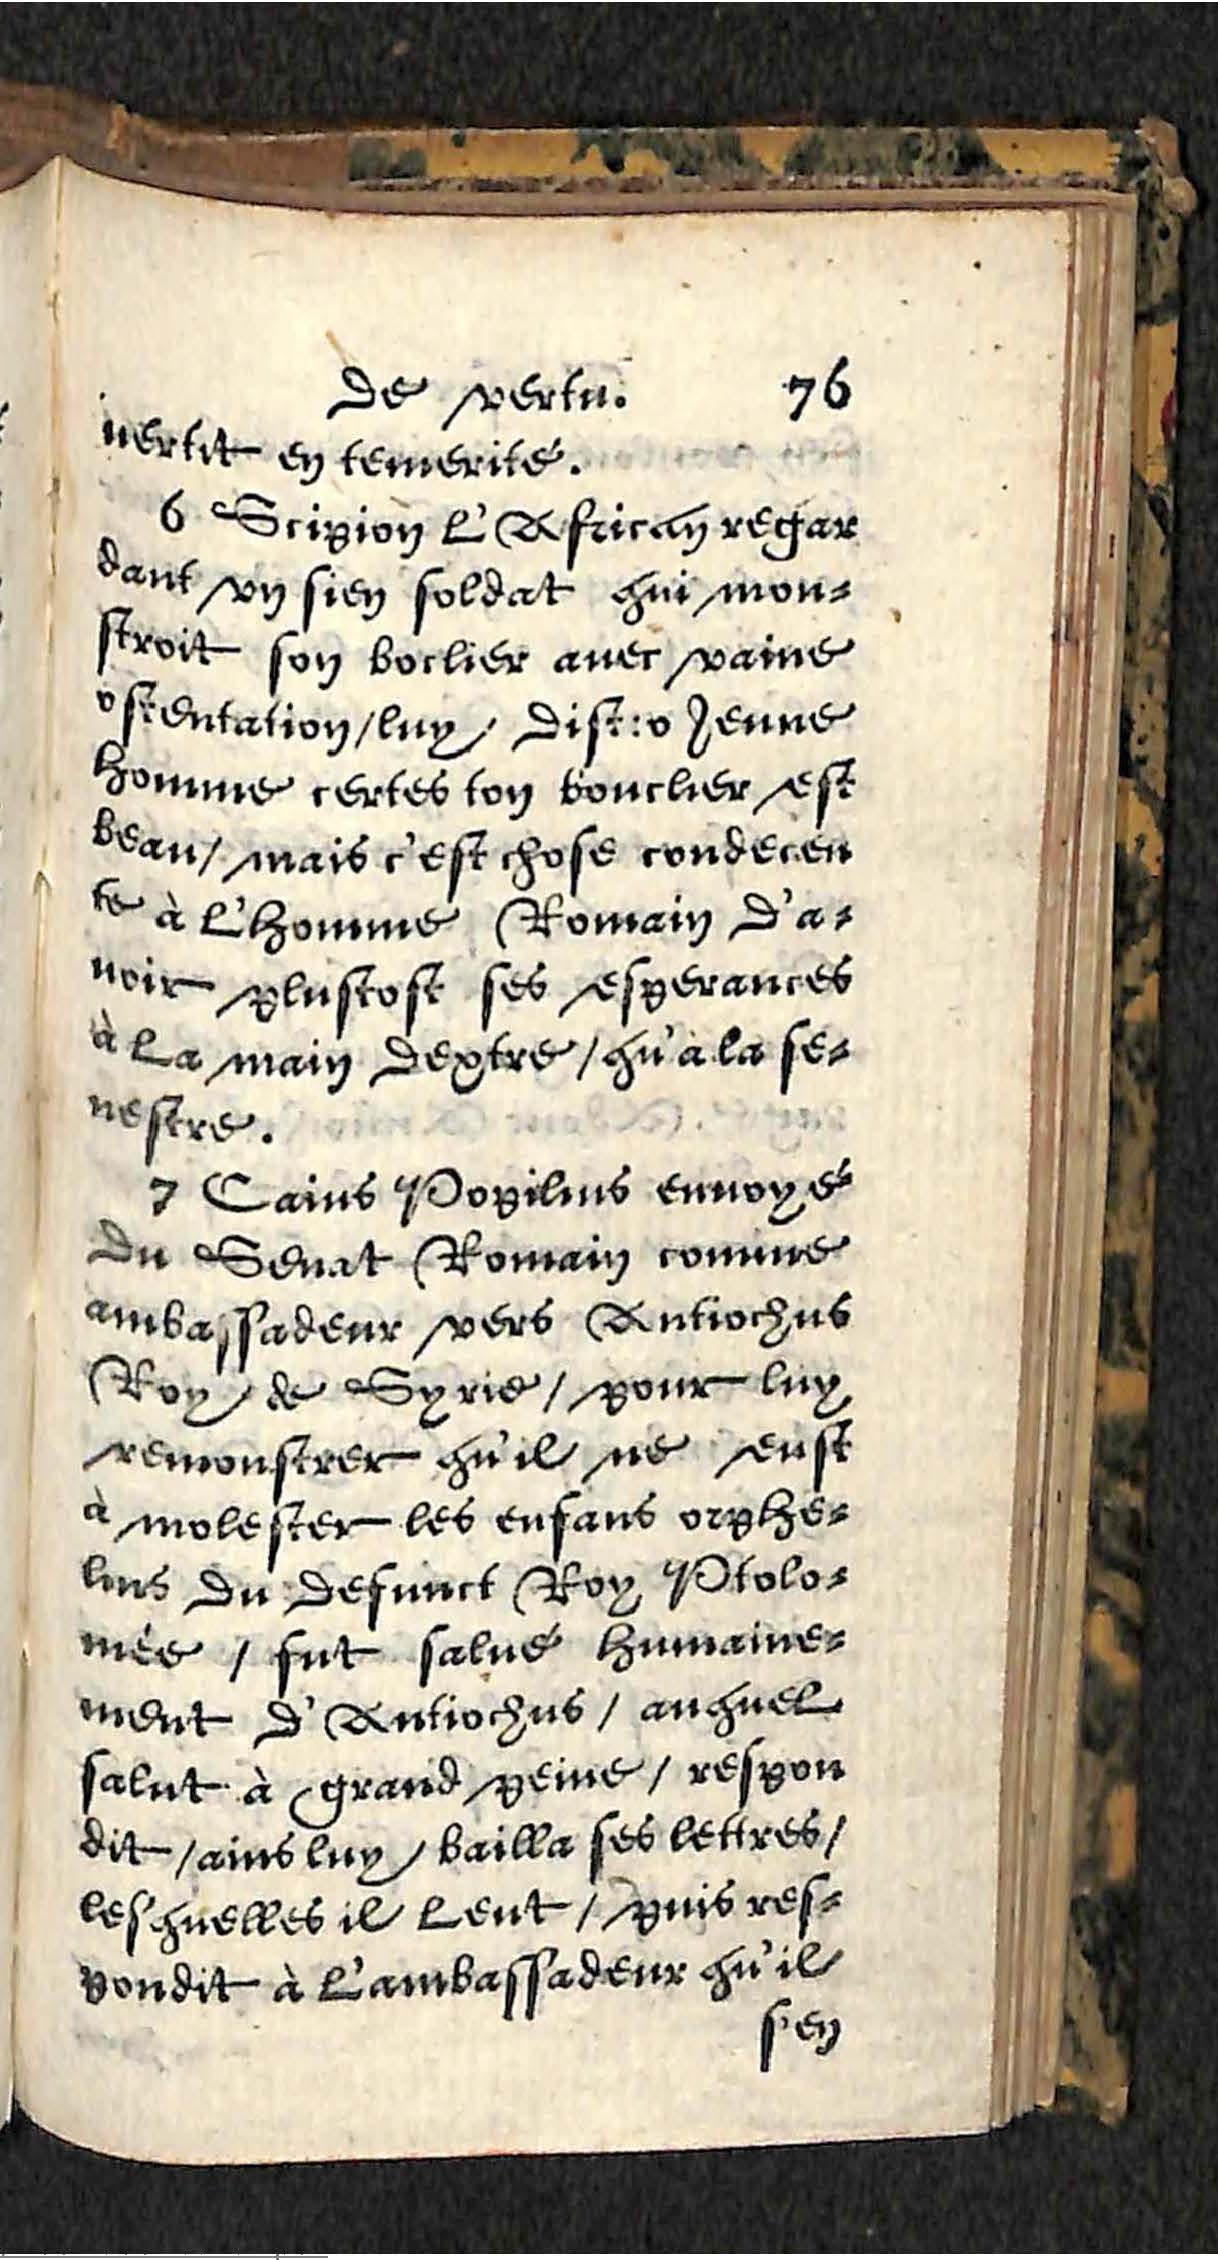 de vertu. 76
uertit en temerité.
6 Scipion L'African regar
dant vn sien soldat qui mon-
stroit son boclier auec vaine
ostentation/luy, dist:o Jeune
homme certes ton bouclier est
beau/ mais c'est chose condecen
te à L'homme Romain d'a-
uoir plustost ses esperances
à La main dextre/qu'à la se-
nestre.
7 Caius Popilius enuoyé
du Senat Romain comme
ambassadeur vers Antiochus
Roy de Syrie/ pour luy
remonstrer qu'il ne eust
à molester les enfans orphe-
lins du defunct Roy Ptolo-
mée / fut salué humaine-
ment d'Antiochus/ auquel
salut à grand peine/ respon
dit/ains luy bailla ses lettres/
les'quelles il Leut/ puis res-
pondit à L'ambassadeur qu'il
s'en